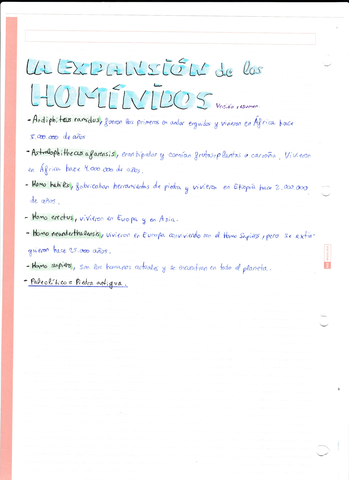 LA EXPANSIÓN de los
HOMÍNIDOS Versión resumen
- Ardiphitecus ramidus, fueron los primeros en andar erguidos y vivieron en África hace
5.000.000 de años.
- Astralophithecus afarensis, eran bípedos y comían frutas, plantas o carroña. Vivieron
en África hace 4.000.000 de años.
- Homo habilis, fabricaban herramientas de piedra y vivieron en Etiopía hace 2.000.000
de años.
- Homo erectus, vivieron en Europa y en Asia.
- Homo neanderthalensis, vivieron en Europa conviviendo con el Homo Sapiens, pero se extin-
guieron hace 27.000 años.
- Homo sapiens, son los humanos actuales y se encuentran en todo el planeta.
- Paleolítico = Piedra antigua.